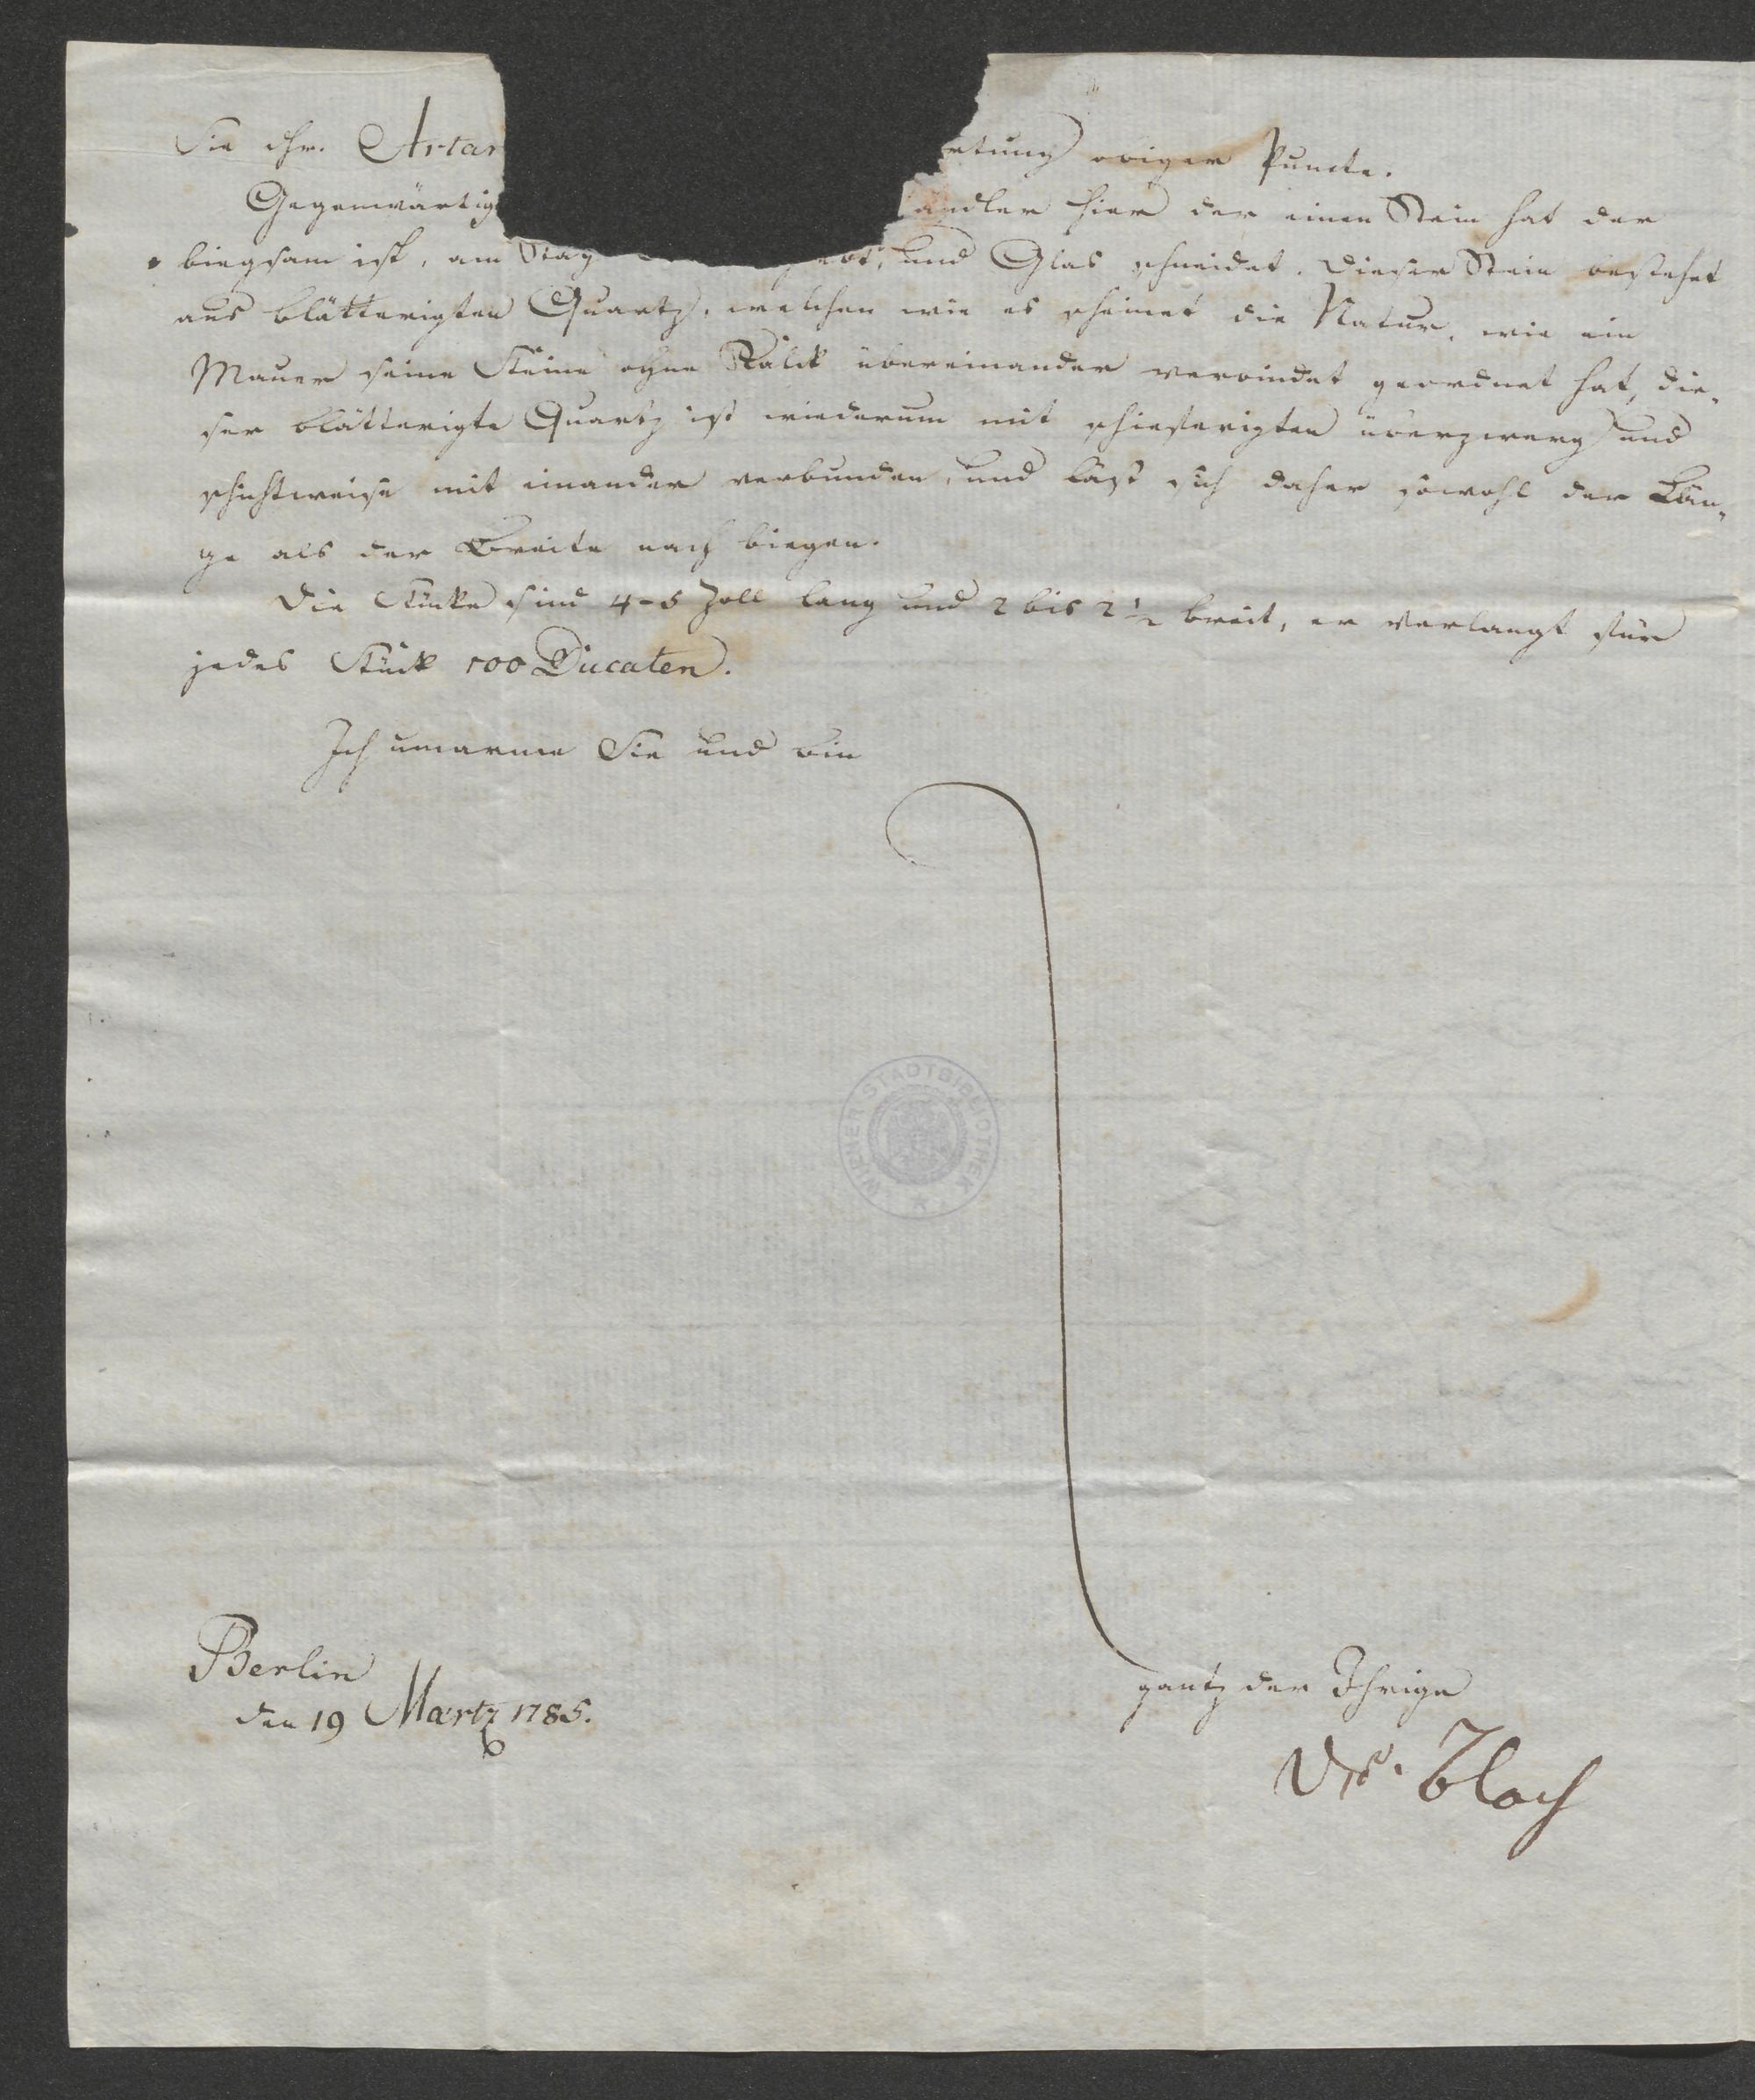 Sie Hr. Artar rtung obiger Puncte.
Gegenwärtig ändler hier der einen Stein hat der
biegsam ist, am und Glas schneidet. Dieser Stein bestehet
aus blätterigten Quartz, welchen wie es scheinet die Natur, wie ein
Maurer seine Steine ohne Kalck übereinander verbindet geordnet hat, die-
ser blätterigte Quartz ist wiederum mit schieferigten überzwerg und
schichtweise mit einander verbunden, und läst sich daher sowohl der Län-
ge als der Breite nach biegen.
Die Stücke sind 4-5 Zoll lang und 2 bis 2 1/2 breit, er verlangt für
jedes Stück 100 Ducaten.
Ich umarme Sie und bin
gantz der Ihrige
Berlin
den 19 Martz 1785.
Dr. Bloch
WIENER STADTBIBLIOTHEK